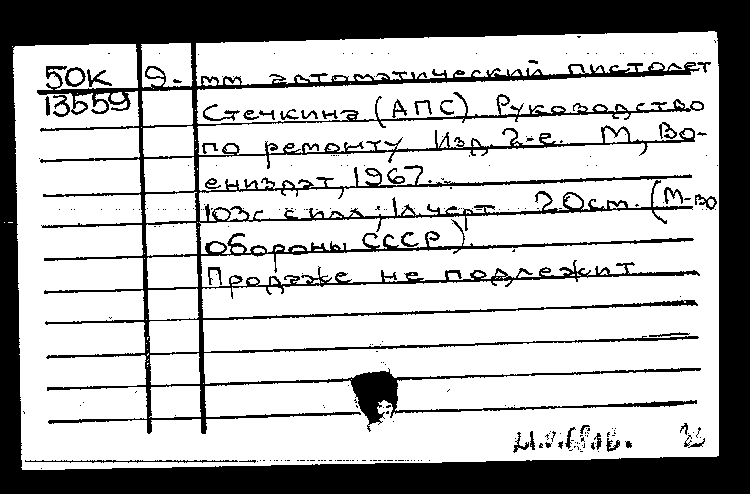 50К 9-мм автоматический пистолет
13559 Стечкина (АПС). Руководство
по ремонту Изд. 2-е. М., Во-
ениздат, 1967.
103с с илл.; 1л. черт. 20см. (М-во
обороны СССР).
Продаже не подлежит